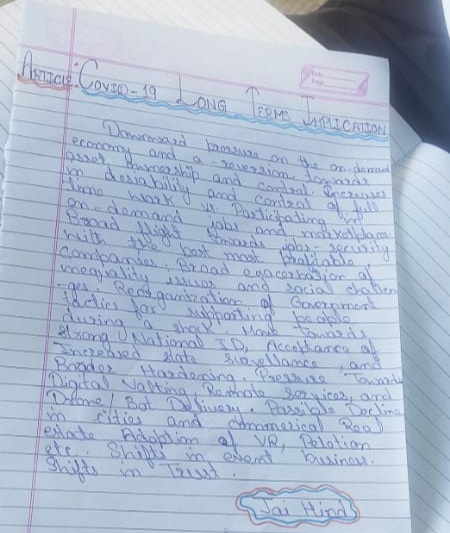 ARTICLE: COVID-19 LONG TERMS IMPLICATION
Date
Page
Downward pressure on the on-demand
economy and a reversion towards
asset ownership and control. Increases
in desirability and control of full
time work vs. Participating in
on-demand jobs and marketplace
Broad flight towards jobs-security
with the best most profitable
companies. Broad exacerbation of
inequality issues and social challen
-ges. Reorganization of Government
tactics for supporting people
during a shock. Move towards
strong National ID, Acceptance of
Increased state surveillance, and
Boarder Hardening. Pressure Towards
Digital Voting Remote Services, and
Drone/Bot Delivery. Possible Decline
in cities and commerical Real
estate Adoption of VR, Peloton
etc. Shifts in event business.
Shifts in Trust.
Jai Hind